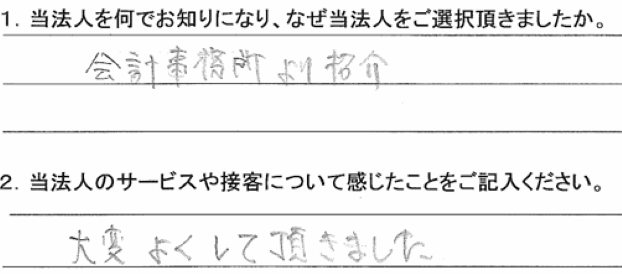 1. 当法人を何でお知りになり、なぜ当法人をご選択頂きましたか。
会計事務所より紹介
2. 当法人のサービスや接客について感じたことをご記入ください。
大変よくして頂きました